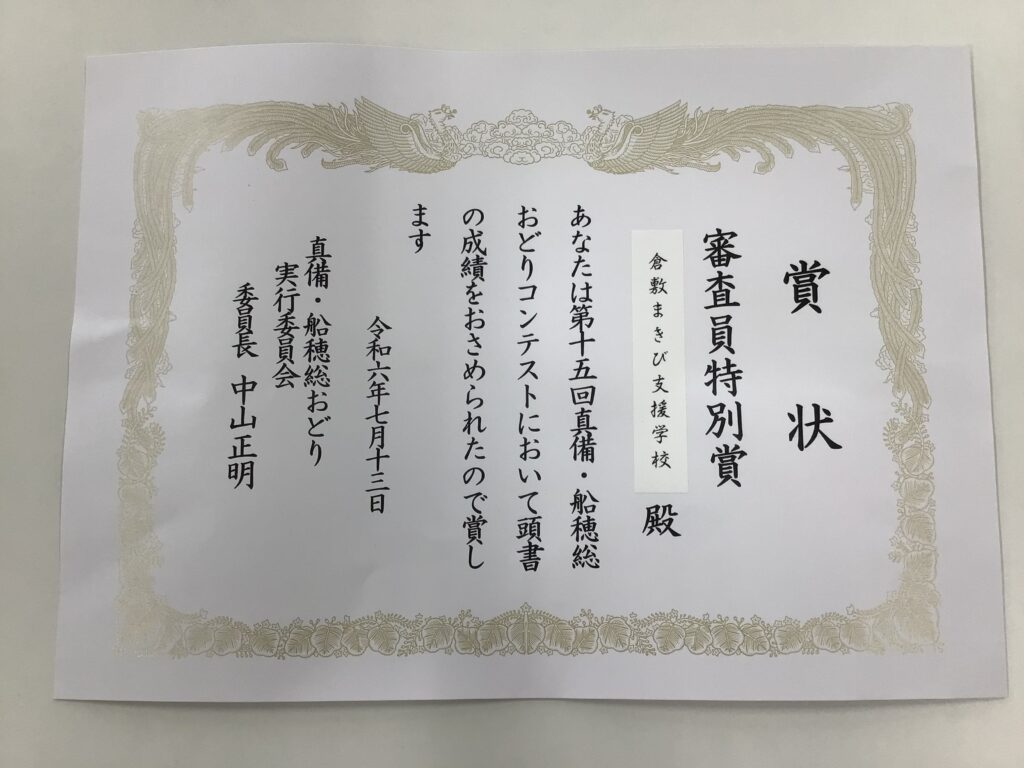 賞状
審査員特別賞
倉敷まきび支援学校
殿
あなたは第十五回真備・船穂総
おどりコンテストにおいて頭書
の成績をおさめられたので賞し
ます
令和六年七月十三日
真備・船穂総おどり
実行委員会
委員長 中山正明